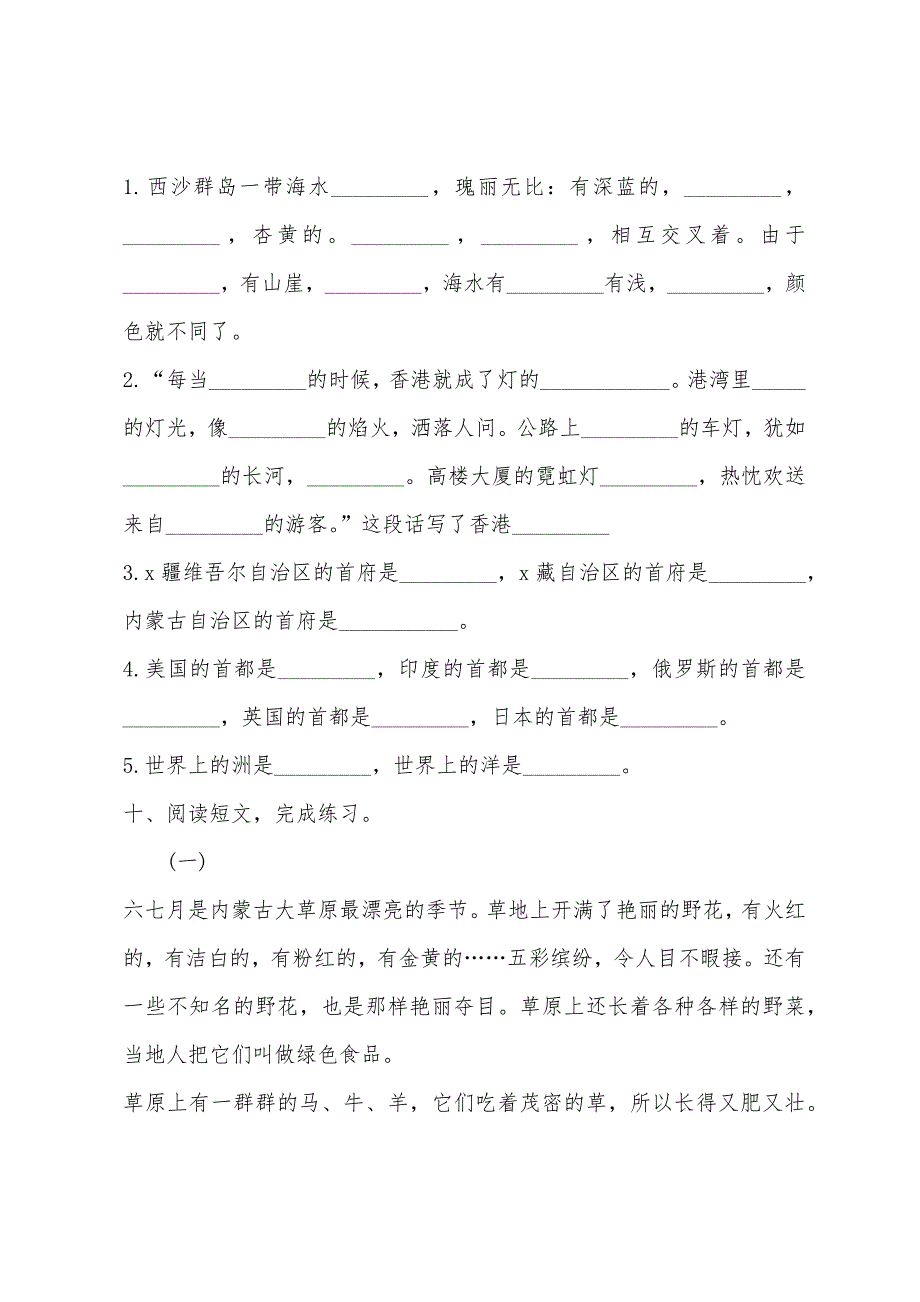 1.西沙群岛一带海水_________，瑰丽无比：有深蓝的，_________，
_________，杏黄的。_________，_________，相互交叉着。由于
_________，有山崖，_________，海水有_________有浅，_________，颜
色就不同了。
2.“每当_________的时候，香港就成了灯的____________。港湾里_____
的灯光，像_________的焰火，洒落人问。公路上_________的车灯，犹如
_________的长河，_________。高楼大厦的霓虹灯_________，热忱欢送
来自_________的游客。”这段话写了香港_________
3.x疆维吾尔自治区的首府是_________，x藏自治区的首府是_________，
内蒙古自治区的首府是___________。
4.美国的首都是_________，印度的首都是_________，俄罗斯的首都是
_________，英国的首都是_________，日本的首都是_________。
5.世界上的洲是_________，世界上的洋是_________。
十、阅读短文，完成练习。
(一)
六七月是内蒙古大草原最漂亮的季节。草地上开满了艳丽的野花，有火红
的，有洁白的，有粉红的，有金黄的……五彩缤纷，令人目不暇接。还有
一些不知名的野花，也是那样艳丽夺目。草原上还长着各种各样的野菜，
当地人把它们叫做绿色食品。
草原上有一群群的马、牛、羊，它们吃着茂密的草，所以长得又肥又壮。